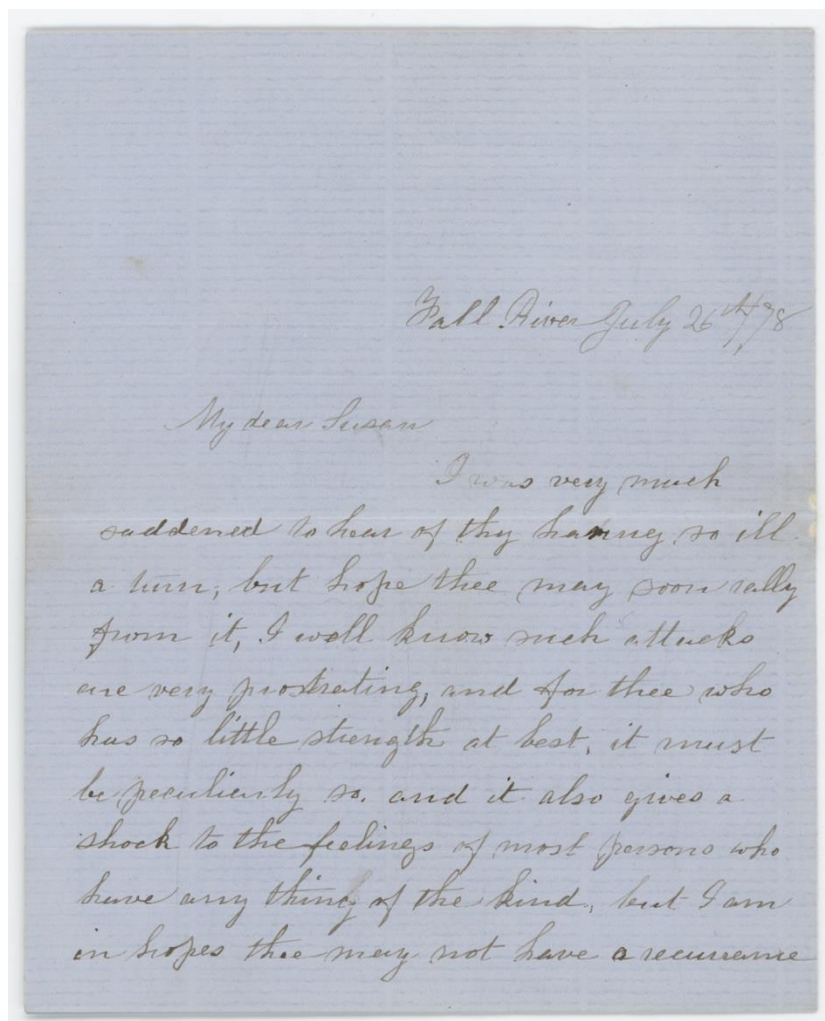 Fall River July 26th/78
My dear Susan
I was very much
saddened to hear of thy having so ill
a turn, but hope thee may soon rally
from it, I well know such attacks
are very prostrating, and for thee who
has so little strength at best, it must
be peculiarly so. and it also gives a
shock to the feelings of most persons who
have any thing of the kind, but I am
in hopes thee may not have a recurrance